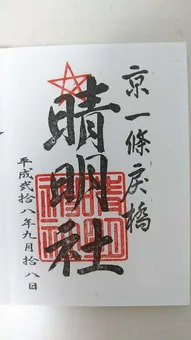 京一條戻橋
晴明社
平成弐拾八年九月拾八日